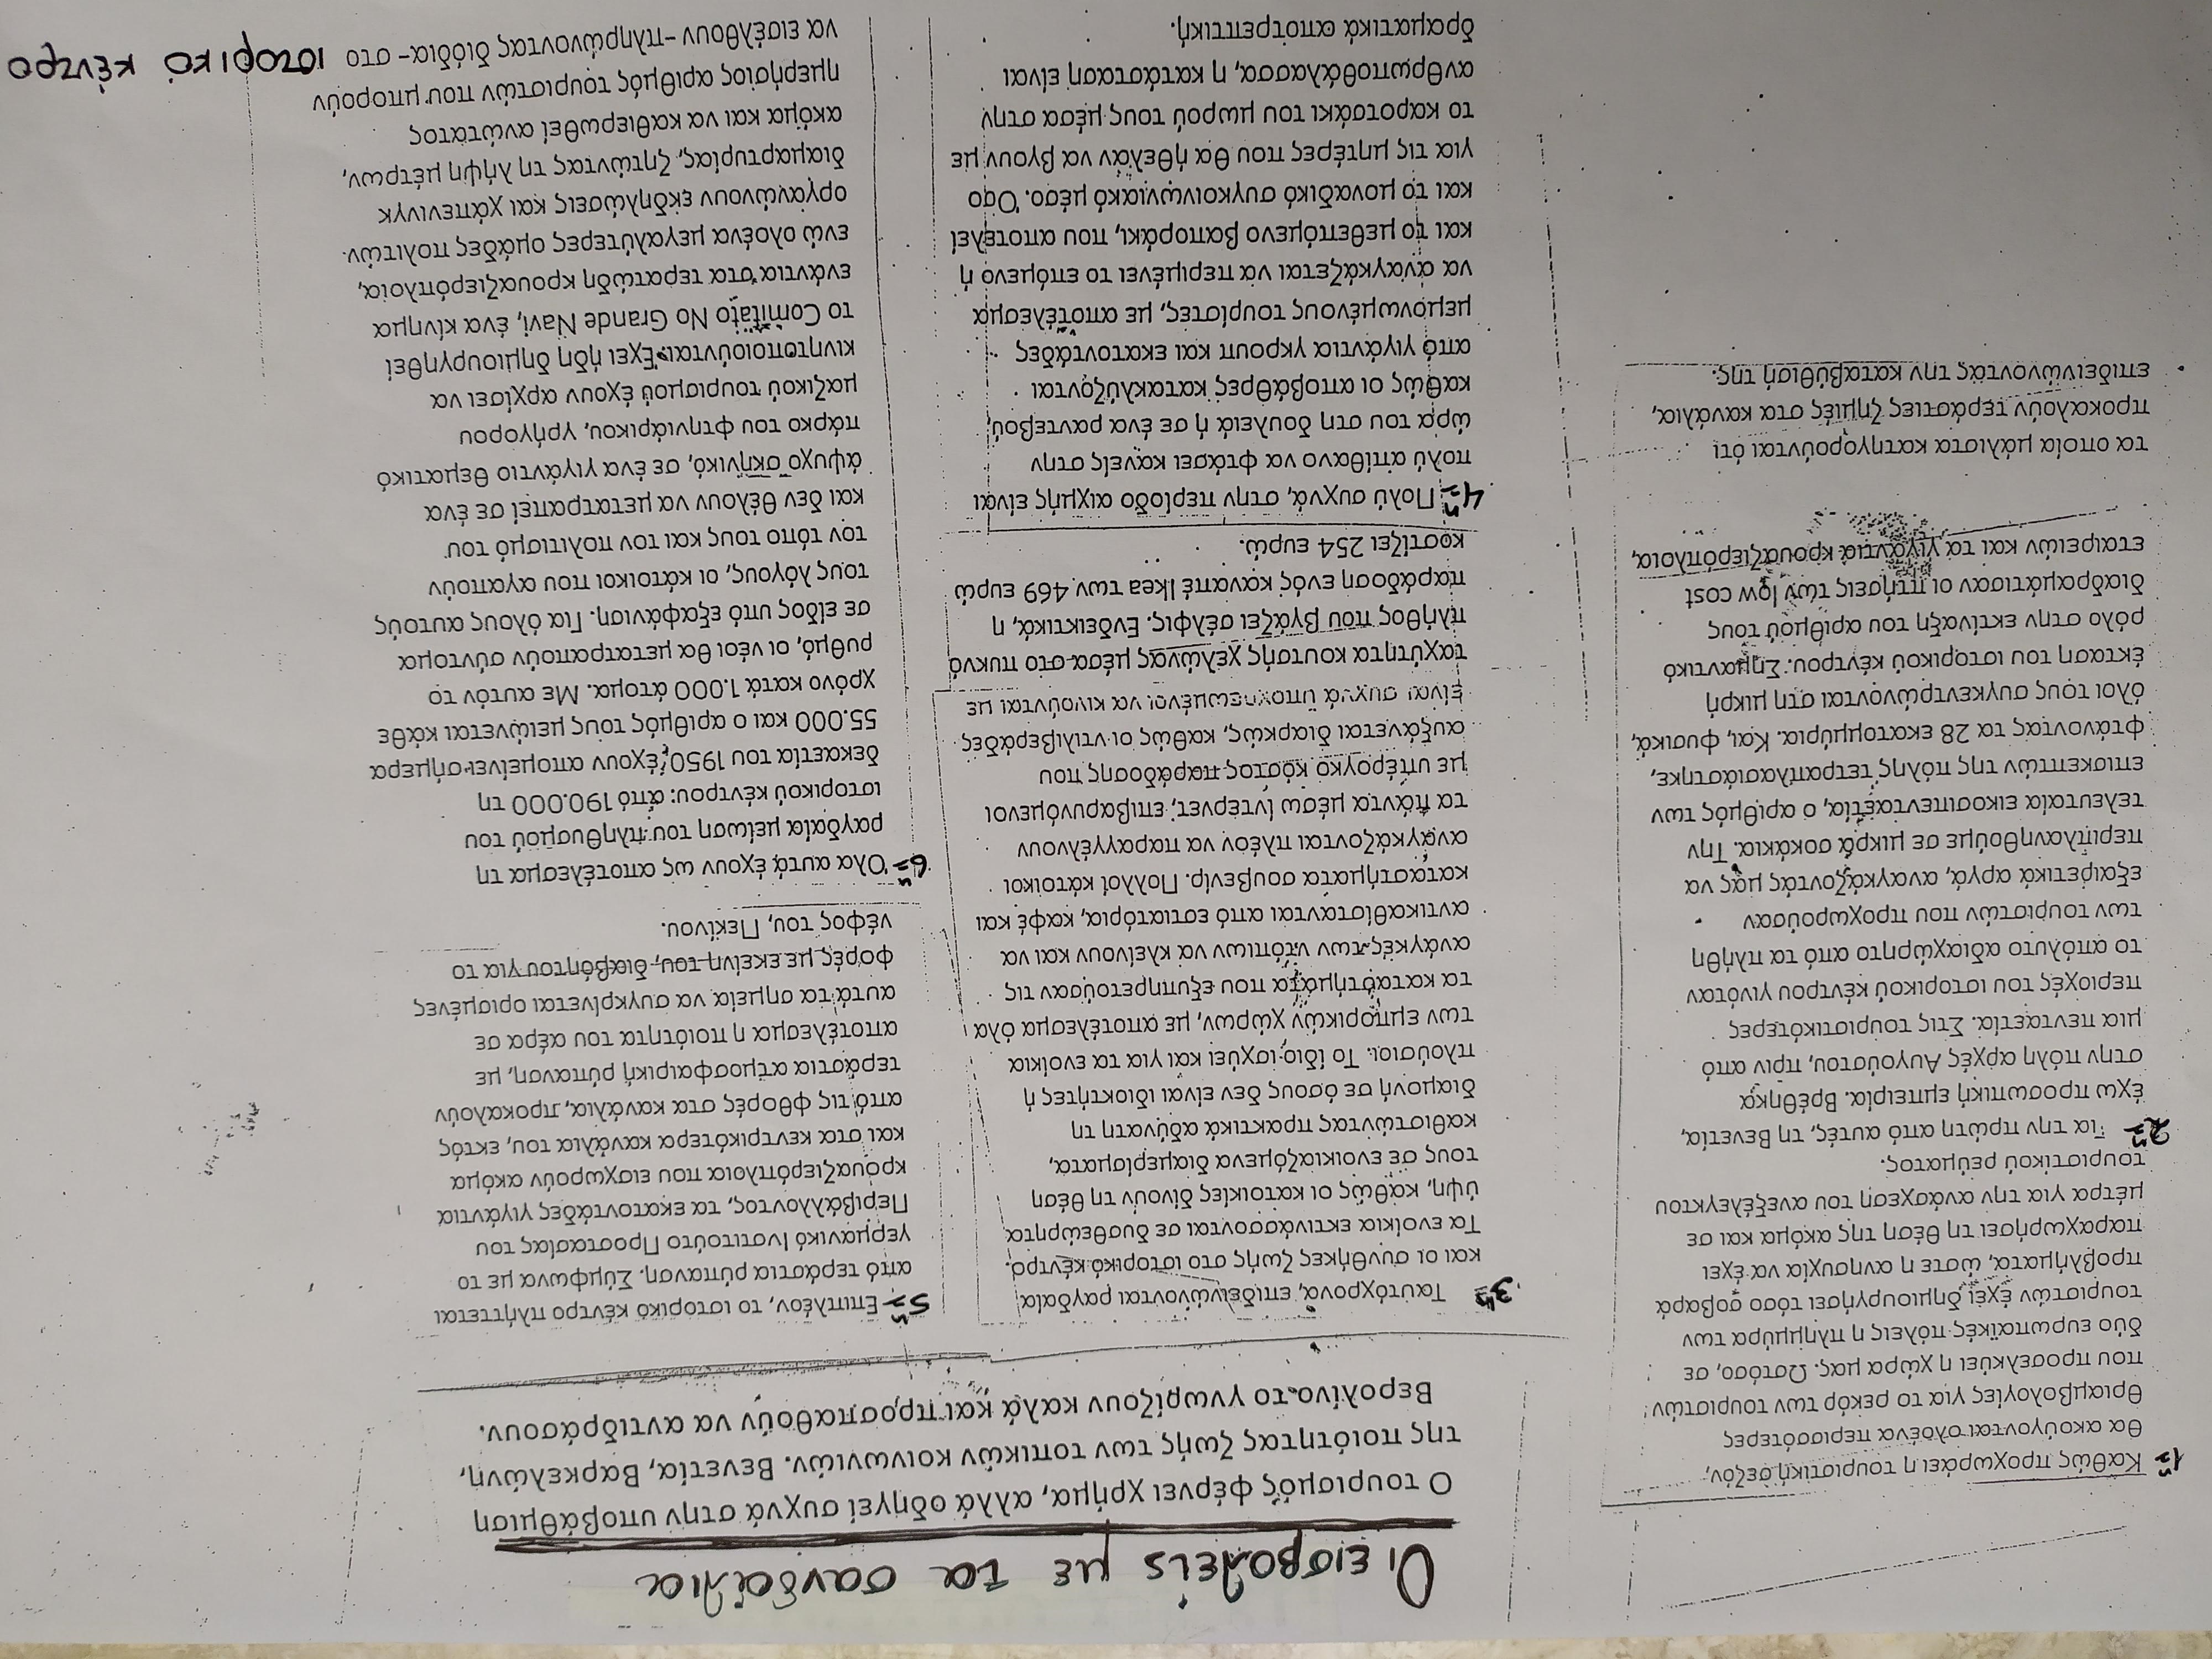 Οι εισβολείς με τα σανδάλια
Ο τουρισμός φέρνει χρήμα, αλλά οδηγεί συχνά στην υποβάθμιση
της ποιότητας ζωής των τοπικών κοινωνιών. Βενετία, Βαρκελώνη,
Βερολίνο το γνωρίζουν καλά και προσπαθούν να αντιδράσουν.
1η Καθώς προχωράει η τουριστική σεζόν,
θα ακούγονται ολοένα περισσότερες
θριαμβολογίες για το ρεκόρ των τουριστών
που προσελκύει η χώρα μας. Ωστόσο, σε
δύο ευρωπαϊκές πόλεις η πλημμύρα των
τουριστών έχει δημιουργήσει τόσο σοβαρά
προβλήματα, ώστε η ανησυχία να έχει
παραχωρήσει τη θέση της ακόμα και σε
μέτρα για την ανάσχεση του ανεξέλεγκτου
τουριστικού ρεύματος.
2η Για την πρώτη από αυτές, τη Βενετία,
έχω προσωπική εμπειρία. Βρέθηκα
στην πόλη αρχές Αυγούστου, πριν από
μια πενταετία. Στις τουριστικότερες
περιοχές του ιστορικού κέντρου γινόταν
το απόλυτο αδιαχώρητο από τα πλήθη
των τουριστών που προχωρούσαν
εξαιρετικά αργά, αναγκάζοντάς μας να
περιπλανηθούμε σε μικρά σοκάκια. Την
τελευταία εικοσιπενταετία, ο αριθμός των
επισκεπτών της πόλης τετραπλασιάστηκε,
φτάνοντας τα 28 εκατομμύρια. Και, φυσικά,
όλοι τους συγκεντρώνονται στη μικρή
έκταση του ιστορικού κέντρου. Σημαντικό
ρόλο στην εκτίναξη του αριθμού τους
διαδραμάτισαν οι πτήσεις των low cost
εταιρειών και τα γιγάντια κρουαζιερόπλοια,
τα οποία μάλιστα κατηγορούνται ότι
προκαλούν τεράστιες ζημιές στα κανάλια,
επιδεινώνοντας την καταβύθισή της.
3η Ταυτόχρονα, επιδεινώνονται ραγδαία
και οι συνθήκες ζωής στο ιστορικό κέντρο.
Τα ενοίκια εκτινάσσονται σε δυσθεώρητα
ύψη, καθώς οι κατοικίες δίνουν τη θέση
τους σε ενοικιαζόμενα διαμερίσματα,
καθιστώντας πρακτικά αδύνατη τη
διαμονή σε όσους δεν είναι ιδιοκτήτες ή
πλούσιοι. Το ίδιο ισχύει και για τα ενοίκια
των εμπορικών χώρων, με αποτέλεσμα όλα
τα καταστήματα που εξυπηρετούσαν τις
ανάγκες των ντόπιων να κλείνουν και να
αντικαθίστανται από εστιατόρια, καφέ και
καταστήματα σουβενίρ. Πολλοί κάτοικοι
αναγκάζονται πλέον να παραγγέλνουν
τα πάντα μέσω ίντερνετ, επιβαρυνόμενοι
με υπέρογκο κόστος παράδοσης που
αυξάνεται διαρκώς, καθώς οι ντιλιβεράδες
είναι συχνά υποχρεωμένοι να κινούνται με
ταχύτητα κουτσής χελώνας μέσα στο πυκνό
πλήθος που βγάζει σέλφις. Ενδεικτικά, η
παράδοση ενός καναπέ Ikea των 469 ευρώ
κοστίζει 254 ευρώ.
4η Πολύ συχνά, στην περίοδο αιχμής είναι
πολύ απίθανο να φτάσει κανείς στην
ώρα του στη δουλειά ή σε ένα ραντεβού,
καθώς οι αποβάθρες κατακλύζονται
από γιγάντια γκρουπ και εκατοντάδες
μεμονωμένους τουρίστες, με αποτέλεσμα
να αναγκάζεται να περιμένει το επόμενο ή
και το μεθεπόμενο βαποράκι, που αποτελεί
και το μοναδικό συγκοινωνιακό μέσο. Όσο
για τις μητέρες που θα ήθελαν να βγουν με
το καροτσάκι του μωρού τους μέσα στην
ανθρωποθάλασσα, η κατάσταση είναι
δραματικά αποτρεπτική.
5η Επιπλέον, το ιστορικό κέντρο πλήττεται
από τεράστια ρύπανση. Σύμφωνα με το
γερμανικό Ινστιτούτο Προστασίας του
Περιβάλλοντος, τα εκατοντάδες γιγάντια
κρουαζιερόπλοια που εισχωρούν ακόμα
και στα κεντρικότερα κανάλια του, εκτός
από τις φθορές στα κανάλια, προκαλούν
τεράστια ατμοσφαιρική ρύπανση, με
αποτέλεσμα η ποιότητα του αέρα σε
αυτά τα σημεία να συγκρίνεται ορισμένες
φορές με εκείνη του, διαβόητου για το
νέφος του, Πεκίνου.
6η Όλα αυτά έχουν ως αποτέλεσμα τη
ραγδαία μείωση του πληθυσμού του
ιστορικού κέντρου: από 190.000 τη
δεκαετία του 1950, έχουν απομείνει σήμερα
55.000 και ο αριθμός τους μειώνεται κάθε
χρόνο κατά 1.000 άτομα. Με αυτόν το
ρυθμό, οι νέοι θα μετατραπούν σύντομα
σε είδος υπό εξαφάνιση. Για όλους αυτούς
τους λόγους, οι κάτοικοι που αγαπούν
τον τόπο τους και τον πολιτισμό του
και δεν θέλουν να μετατραπεί σε ένα
άψυχο σκηνικό, σε ένα γιγάντιο θεματικό
πάρκο του φτηνιάρικου, γρήγορου
μαζικού τουρισμού έχουν αρχίσει να
κινητοποιούνται. Έχει ήδη δημιουργηθεί
το Comitato No Grande Navi, ένα κίνημα
ενάντια στα τερατώδη κρουαζιερόπλοια,
ενώ ολοένα μεγαλύτερες ομάδες πολιτών
οργανώνουν εκδηλώσεις και χάπενινγκ
διαμαρτυρίας, ζητώντας τη λήψη μέτρων,
ακόμα και να καθιερωθεί ανώτατος
ημερήσιος αριθμός τουριστών που μπορούν
να εισέλθουν -πληρώνοντας διόδια- στο ιστορικό κέντρο